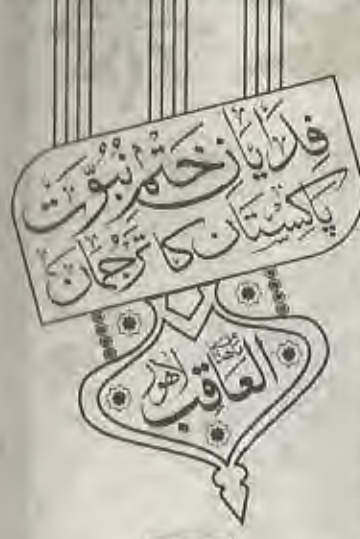 فِدَایَانِ خَتْمِ نُبُوَّت
پاکِسْتان کا تَرجُمان
العَاقِب لاهور